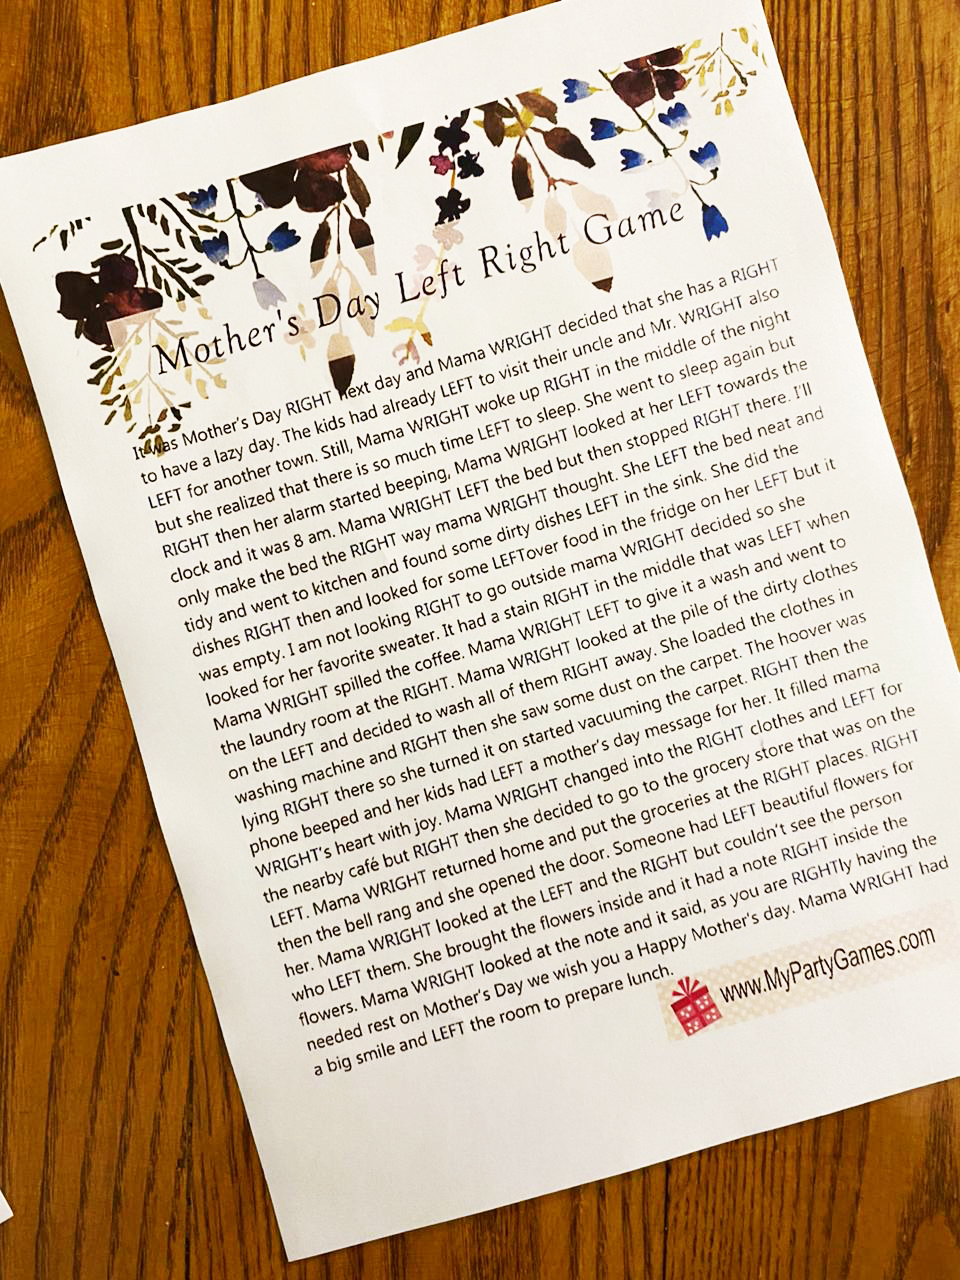 Mother's Day Left Right Game
It was Mother's Day RIGHT next day and Mama WRIGHT decided that she has a RIGHT
to have a lazy day. The kids had already LEFT to visit their uncle and Mr. WRIGHT also
LEFT for another town. Still, Mama WRIGHT woke up RIGHT in the middle of the night
but she realized that there is so much time LEFT to sleep. She went to sleep again but
RIGHT then her alarm started beeping, Mama WRIGHT looked at her LEFT towards the
clock and it was 8 am. Mama WRIGHT LEFT the bed but then stopped RIGHT there. I'll
only make the bed the RIGHT way mama WRIGHT thought. She LEFT the bed neat and
tidy and went to kitchen and found some dirty dishes LEFT in the sink. She did the
dishes RIGHT then and looked for some LEFTover food in the fridge on her LEFT but it
was empty. I am not looking RIGHT to go outside mama WRIGHT decided so she
looked for her favorite sweater. It had a stain RIGHT in the middle that was LEFT when
Mama WRIGHT spilled the coffee. Mama WRIGHT LEFT to give it a wash and went to
the laundry room at the RIGHT. Mama WRIGHT looked at the pile of the dirty clothes
on the LEFT and decided to wash all of them RIGHT away. She loaded the clothes in
washing machine and RIGHT then she saw some dust on the carpet. The hoover was
lying RIGHT there so she turned it on started vacuuming the carpet. RIGHT then the
phone beeped and her kids had LEFT a mother's day message for her. It filled mama
WRIGHT's heart with joy. Mama WRIGHT changed into the RIGHT clothes and LEFT for
the nearby café but RIGHT then she decided to go to the grocery store that was on the
LEFT. Mama WRIGHT returned home and put the groceries at the RIGHT places. RIGHT
then the bell rang and she opened the door. Someone had LEFT beautiful flowers for
her. Mama WRIGHT looked at the LEFT and the RIGHT but couldn't see the person
who LEFT them. She brought the flowers inside and it had a note RIGHT inside the
flowers. Mama WRIGHT looked at the note and it said, as you are RIGHTly having the
needed rest on Mother's Day we wish you a Happy Mother's day. Mama WRIGHT had
a big smile and LEFT the room to prepare lunch.
www.MyPartyGames.com